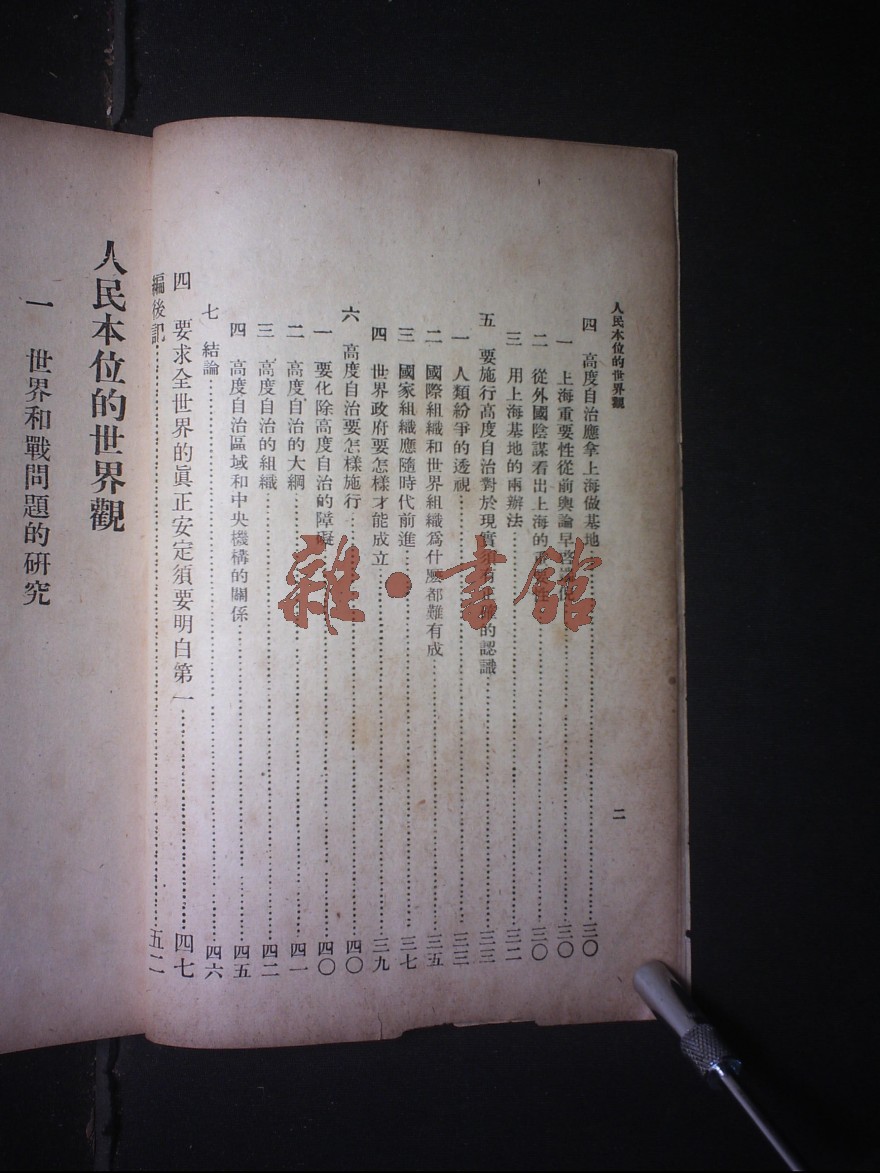 人民本位的世界觀
二
四 高度自治應拿上海做基地……三〇
一 上海重要性從前輿論早啓……三〇
二 從外國陰謀看出上海的重要性……三〇
三 用上海基地的兩辦法……三二
五 要施行高度自治對於現實須有正確的認識……三三
一 人類紛爭的透視……三三
二 國際組織和世界組織爲什麽都難有成……三五
三 國家組織應隨時代前進……三七
四 世界政府要怎樣才能成立……三九
六 高度自治要怎樣施行……四〇
一 要化除高度自治的障礙……四〇
二 高度自治的大綱……四一
三 高度自治的組織……四二
四 高度自治區域和中央機構的關係……四五
七 結論……四六
四 要求全世界的眞正安定須要明白第一……四七
編後記……五二
人民本位的世界觀
一 世界和戰問題的研究
雜·書館